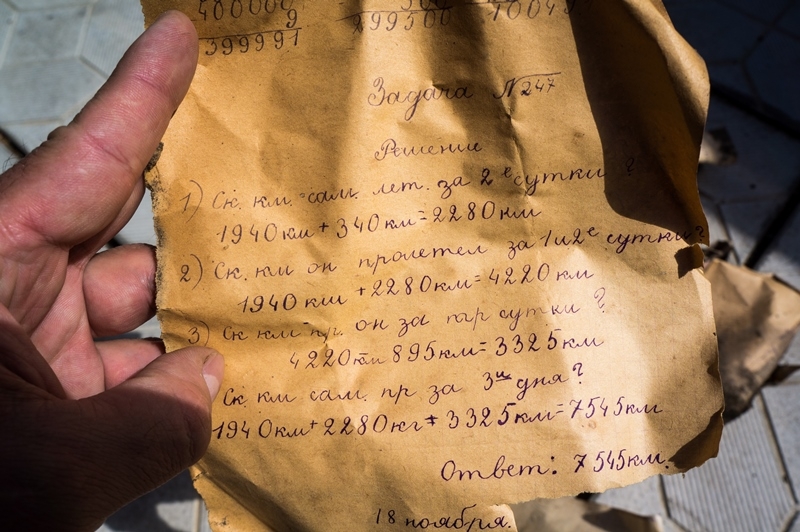 400000
9
399991
299500
Задача №247
Решение
1) Ск. км. сам. лет. за 2е сутки?
1940км + 340км = 2280км
2) Ск. км он пролетел за 1и2е сутки?
1940 км + 2280км = 4220 км
3) Ск км пр. он за тр сутки?
4220км 895км = 3325км
Ск. км сам. пр. за 3и дня?
1940км + 2280кг + 3325км = 7545км
Ответ: 7545км.
18 ноября.